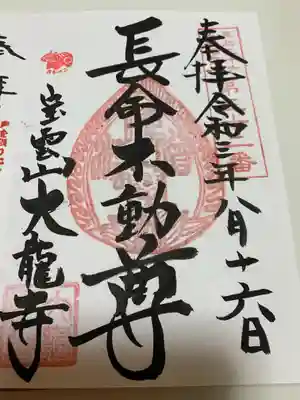 奉拝 令和三年 八月十六日
長命不動尊
宝雲山 大龍寺
奉拝